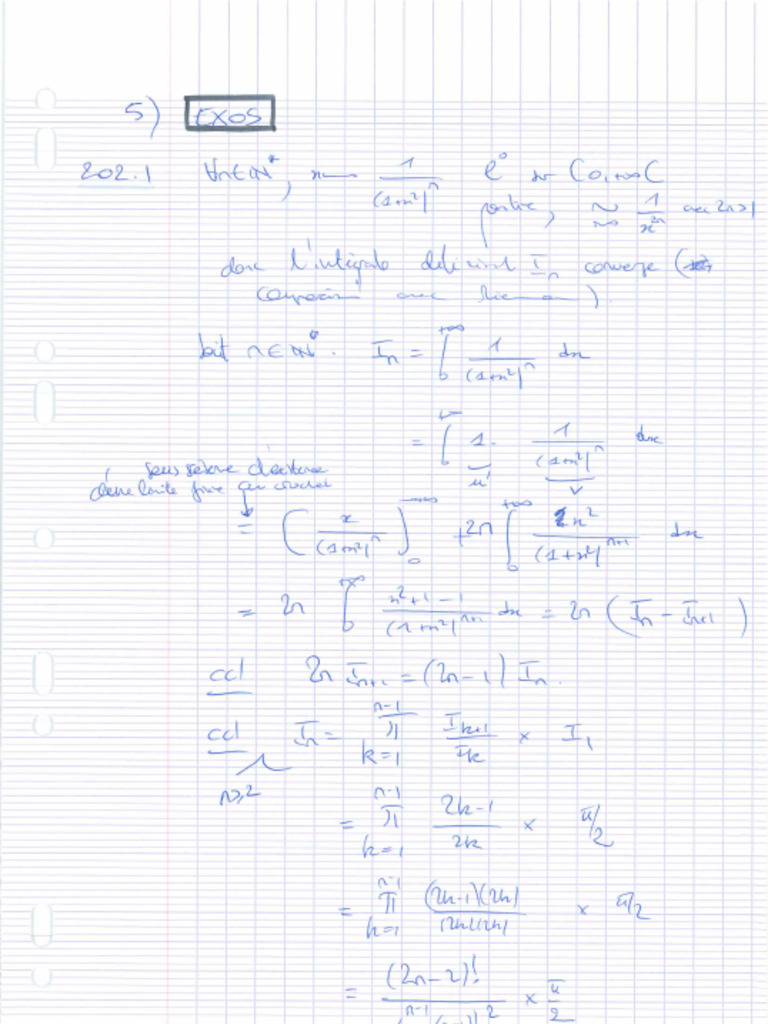 5) EXOS
202.1 ∀n∈ℕ*, x ↦ 1/(1+x²)^n C⁰ sur [0,+∞[
positive, ~ 1/x^{2n} avec 2n>1
+∞
donc l'intégrale définissant I_n converge (
comparaison avec Riemann).
Soit n∈ℕ*. I_n = ∫_0^{+∞} 1/(1+x²)^n dx
= ∫_0^{+∞} 1 · 1/(1+x²)^n dx
u' v
sous réserve d'existence
d'une limite finie au crochet
= [x/(1+x²)^n]_0^{+∞} + 2n ∫_0^{+∞} x²/(1+x²)^{n+1} dx
= 2n ∫_0^{+∞} (x²+1-1)/(1+x²)^{n+1} dx = 2n (I_n - I_{n+1})
ccl 2n I_{n+1} = (2n-1) I_n.
ccl I_n = ∏_{k=1}^{n-1} I_{k+1}/I_k × I_1
n≥2
= ∏_{k=1}^{n-1} (2k-1)/2k × π/2
= ∏_{k=1}^{n-1} (2k-1)(2k)/(2k)(2k) × π/2
= (2n-2)!/(4^{n-1} (n-1)!²) × π/2